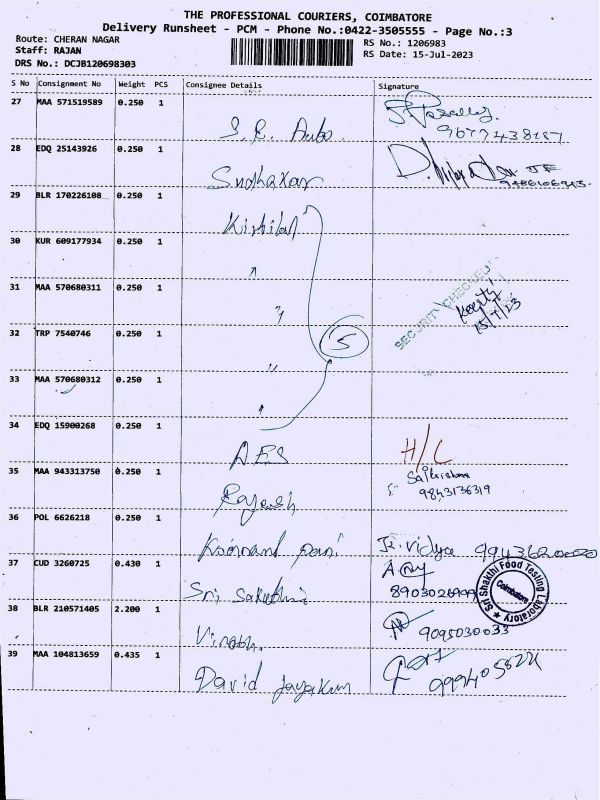 THE PROFESSIONAL COURIERS, COIMBATORE
Delivery Runsheet - PCM - Phone No.:0422-3505555 - Page No.:3
Route: CHERAN NAGAR
RS No.: 1206983
Staff: RAJAN
RS Date: 15-Jul-2023
DRS No.: DCJB120698303
S No Consignment No Weight PCS Consignee Details Signature
27 MAA 571519589 0.250 1
S.B. Anbo
28 EDQ 25143926 0.250 1
Sudhakar
29 BLR 170226108 0.250 1
30 KUR 609177934 0.250 1
31 MAA 570680311 0.250 1
SECURITY CHECKED
15/7/23
32 TRP 7540746 0.250 1
5
33 MAA 570680312 0.250 1
34 EDQ 15900268 0.250 1
AES H/C
35 MAA 943313750 0.250 1
Rajesh Saikrishna
9843136319
36 POL 6626218 0.250 1
vidya
37 CUD 3260725 0.430 1
Sri Sakthi
Sri Shakthi Food Testing Laboratory
Coimbatore
38 BLR 210571405 2.200 1
9095030033
39 MAA 104813659 0.435 1
David Jayakum